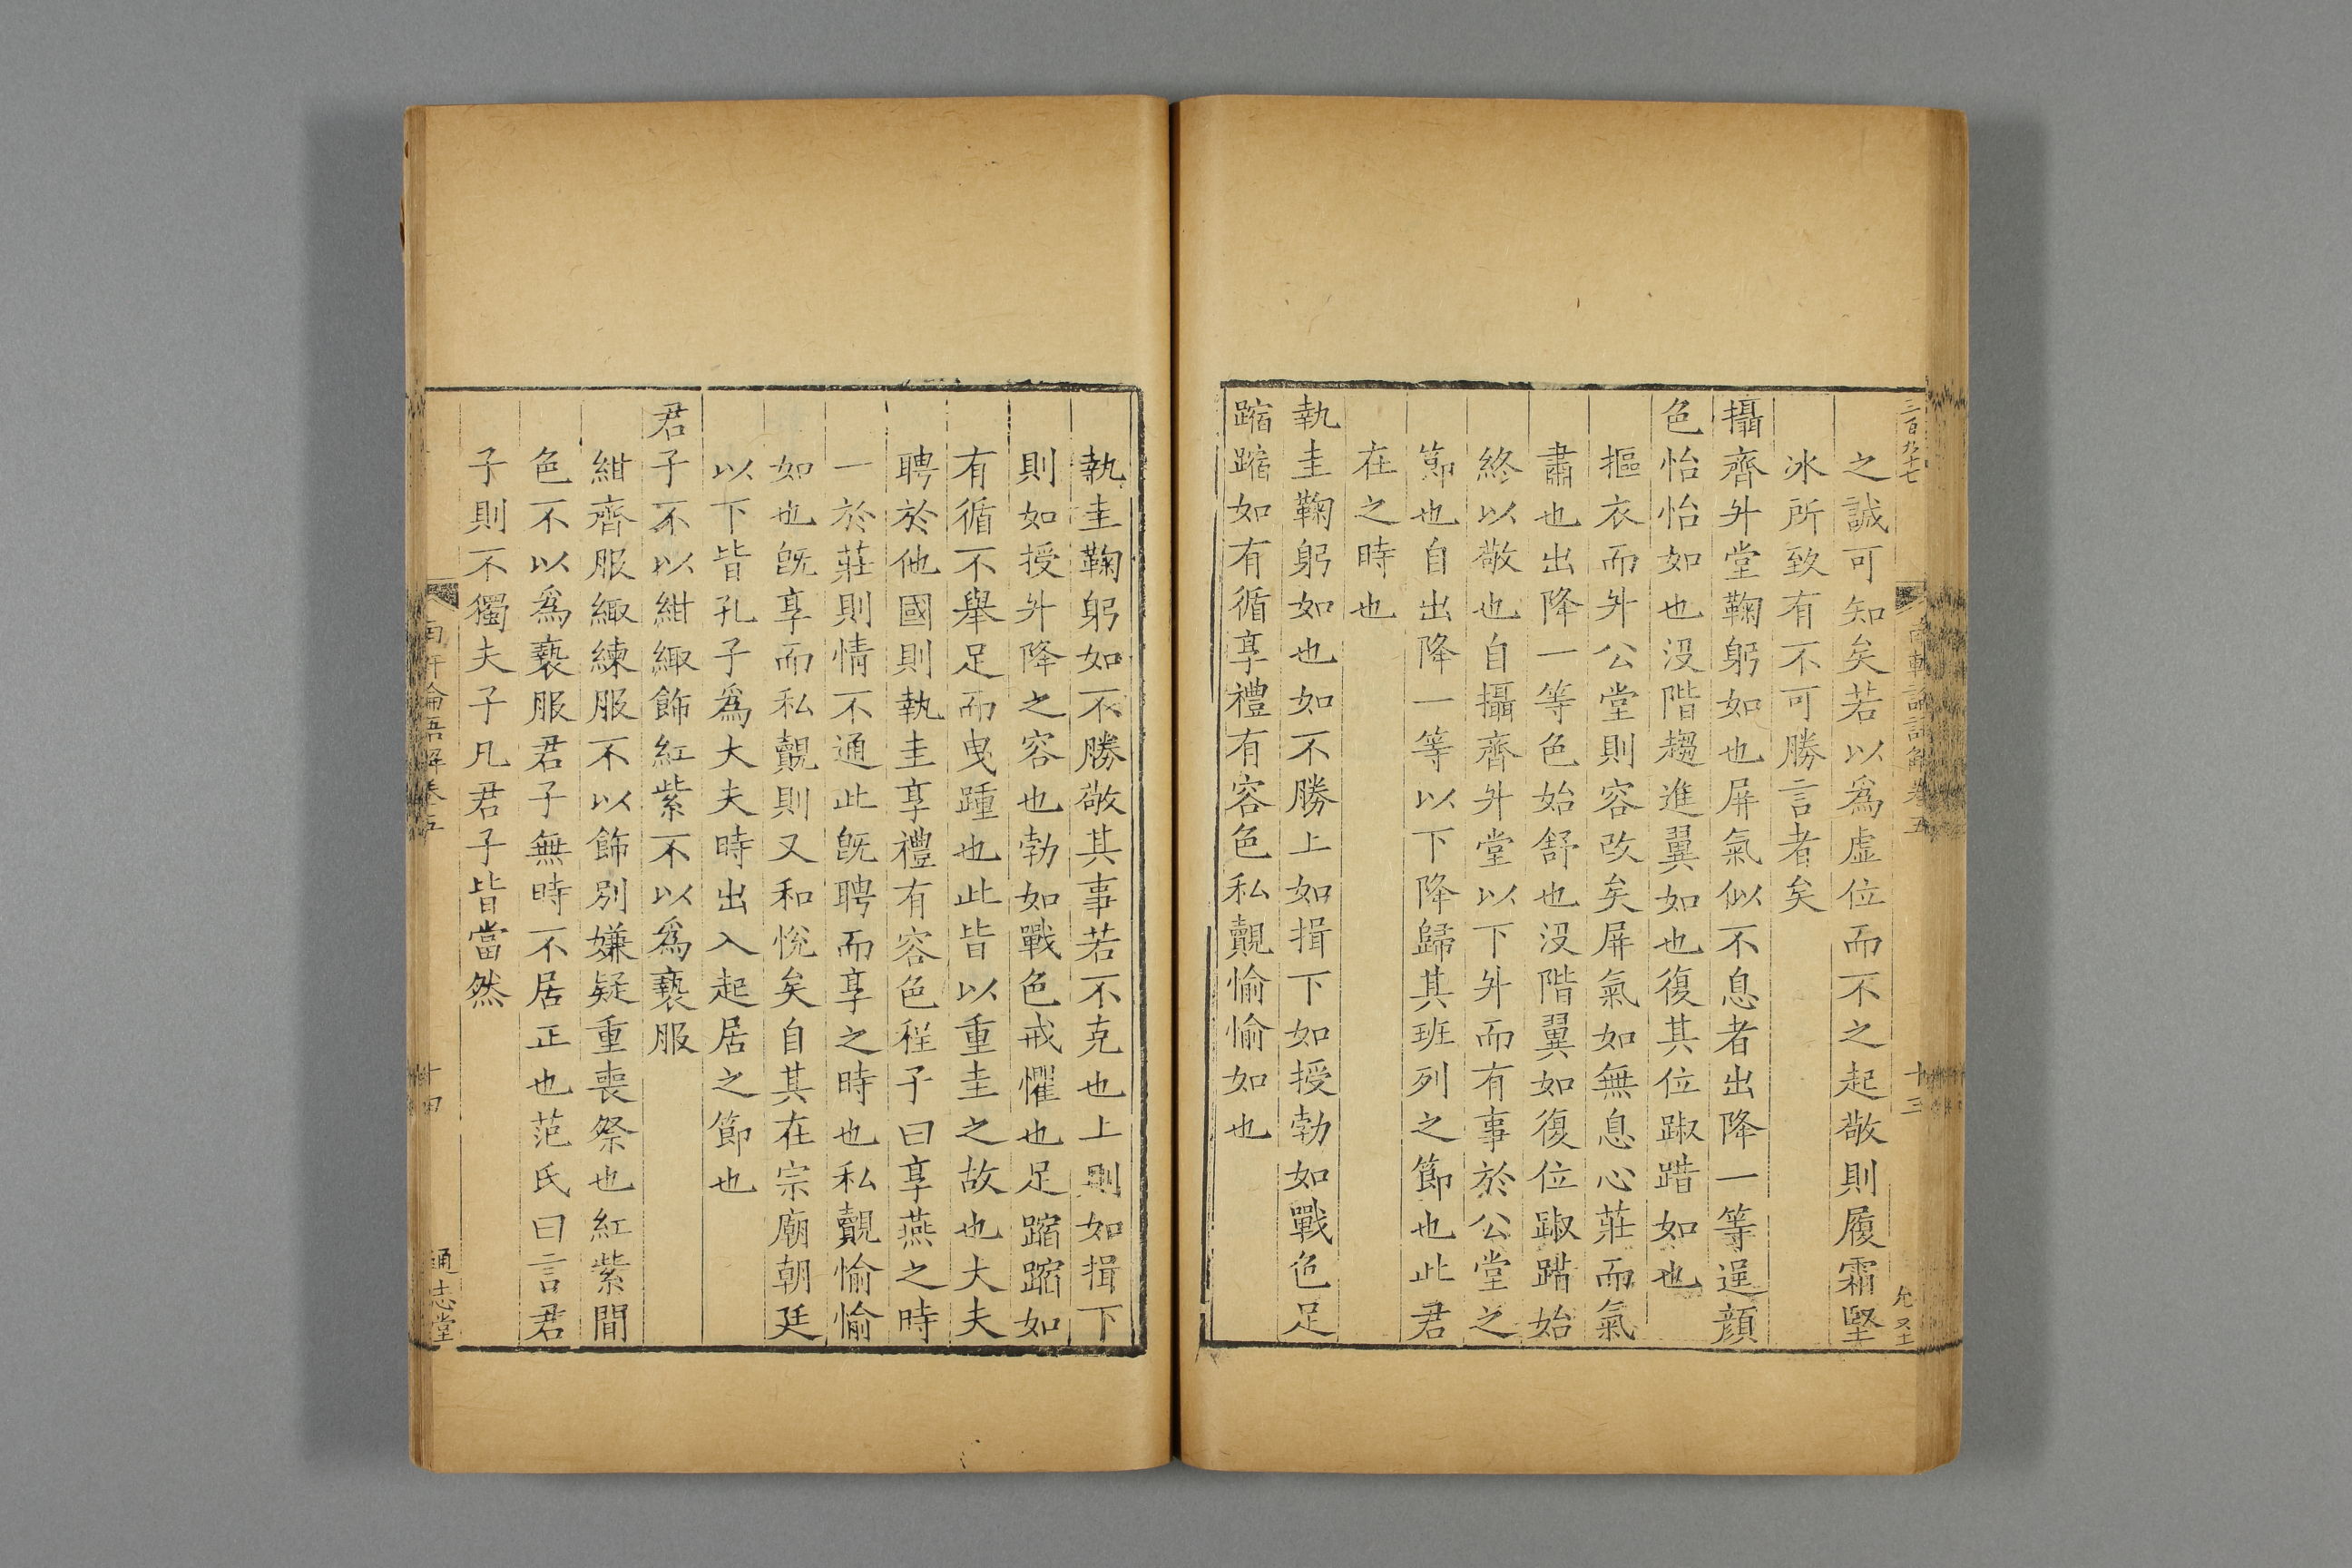 之誠可知矣若以爲虛位而不之起敬則履霜堅
冰所致有不可勝言者矣
攝齊升堂鞠躬如也屏氣似不息者出降一等逞顔
色怡怡如也沒階趨進翼如也復其位踧踖如也
摳衣而升公堂則容改矣屏氣如無息心莊而氣
肅也出降一等色始舒也沒階翼如復位踧踖始
終以敬也自攝齊升堂以下升而有事於公堂之
節也自出降一等以下降歸其班列之節也此君
在之時也
執圭鞠躬如也如不勝上如揖下如授勃如戰色足
蹜蹜如有循享禮有容色私覿愉愉如也
南軒論語解卷五
十三
執圭鞠躬如不勝敬其事若不克也上則如揖下
則如授升降之容也勃如戰色戒懼也足蹜蹜如
有循不舉足而曳踵也此皆以重圭之故也大夫
聘於他國則執圭享禮有容色程子曰享燕之時
一於莊則情不通此旣聘而享之時也私覿愉愉
如也旣享而私覿則又和悅矣自其在宗廟朝廷
以下皆孔子爲大夫時出入起居之節也
君子不以紺緅飾紅紫不以爲褻服
紺齊服緅練服不以飾別嫌疑重喪祭也紅紫間
色不以爲褻服君子無時不居正也范氏曰言君
子則不獨夫子凡君子皆當然
南軒論語解卷五
十四
通志堂